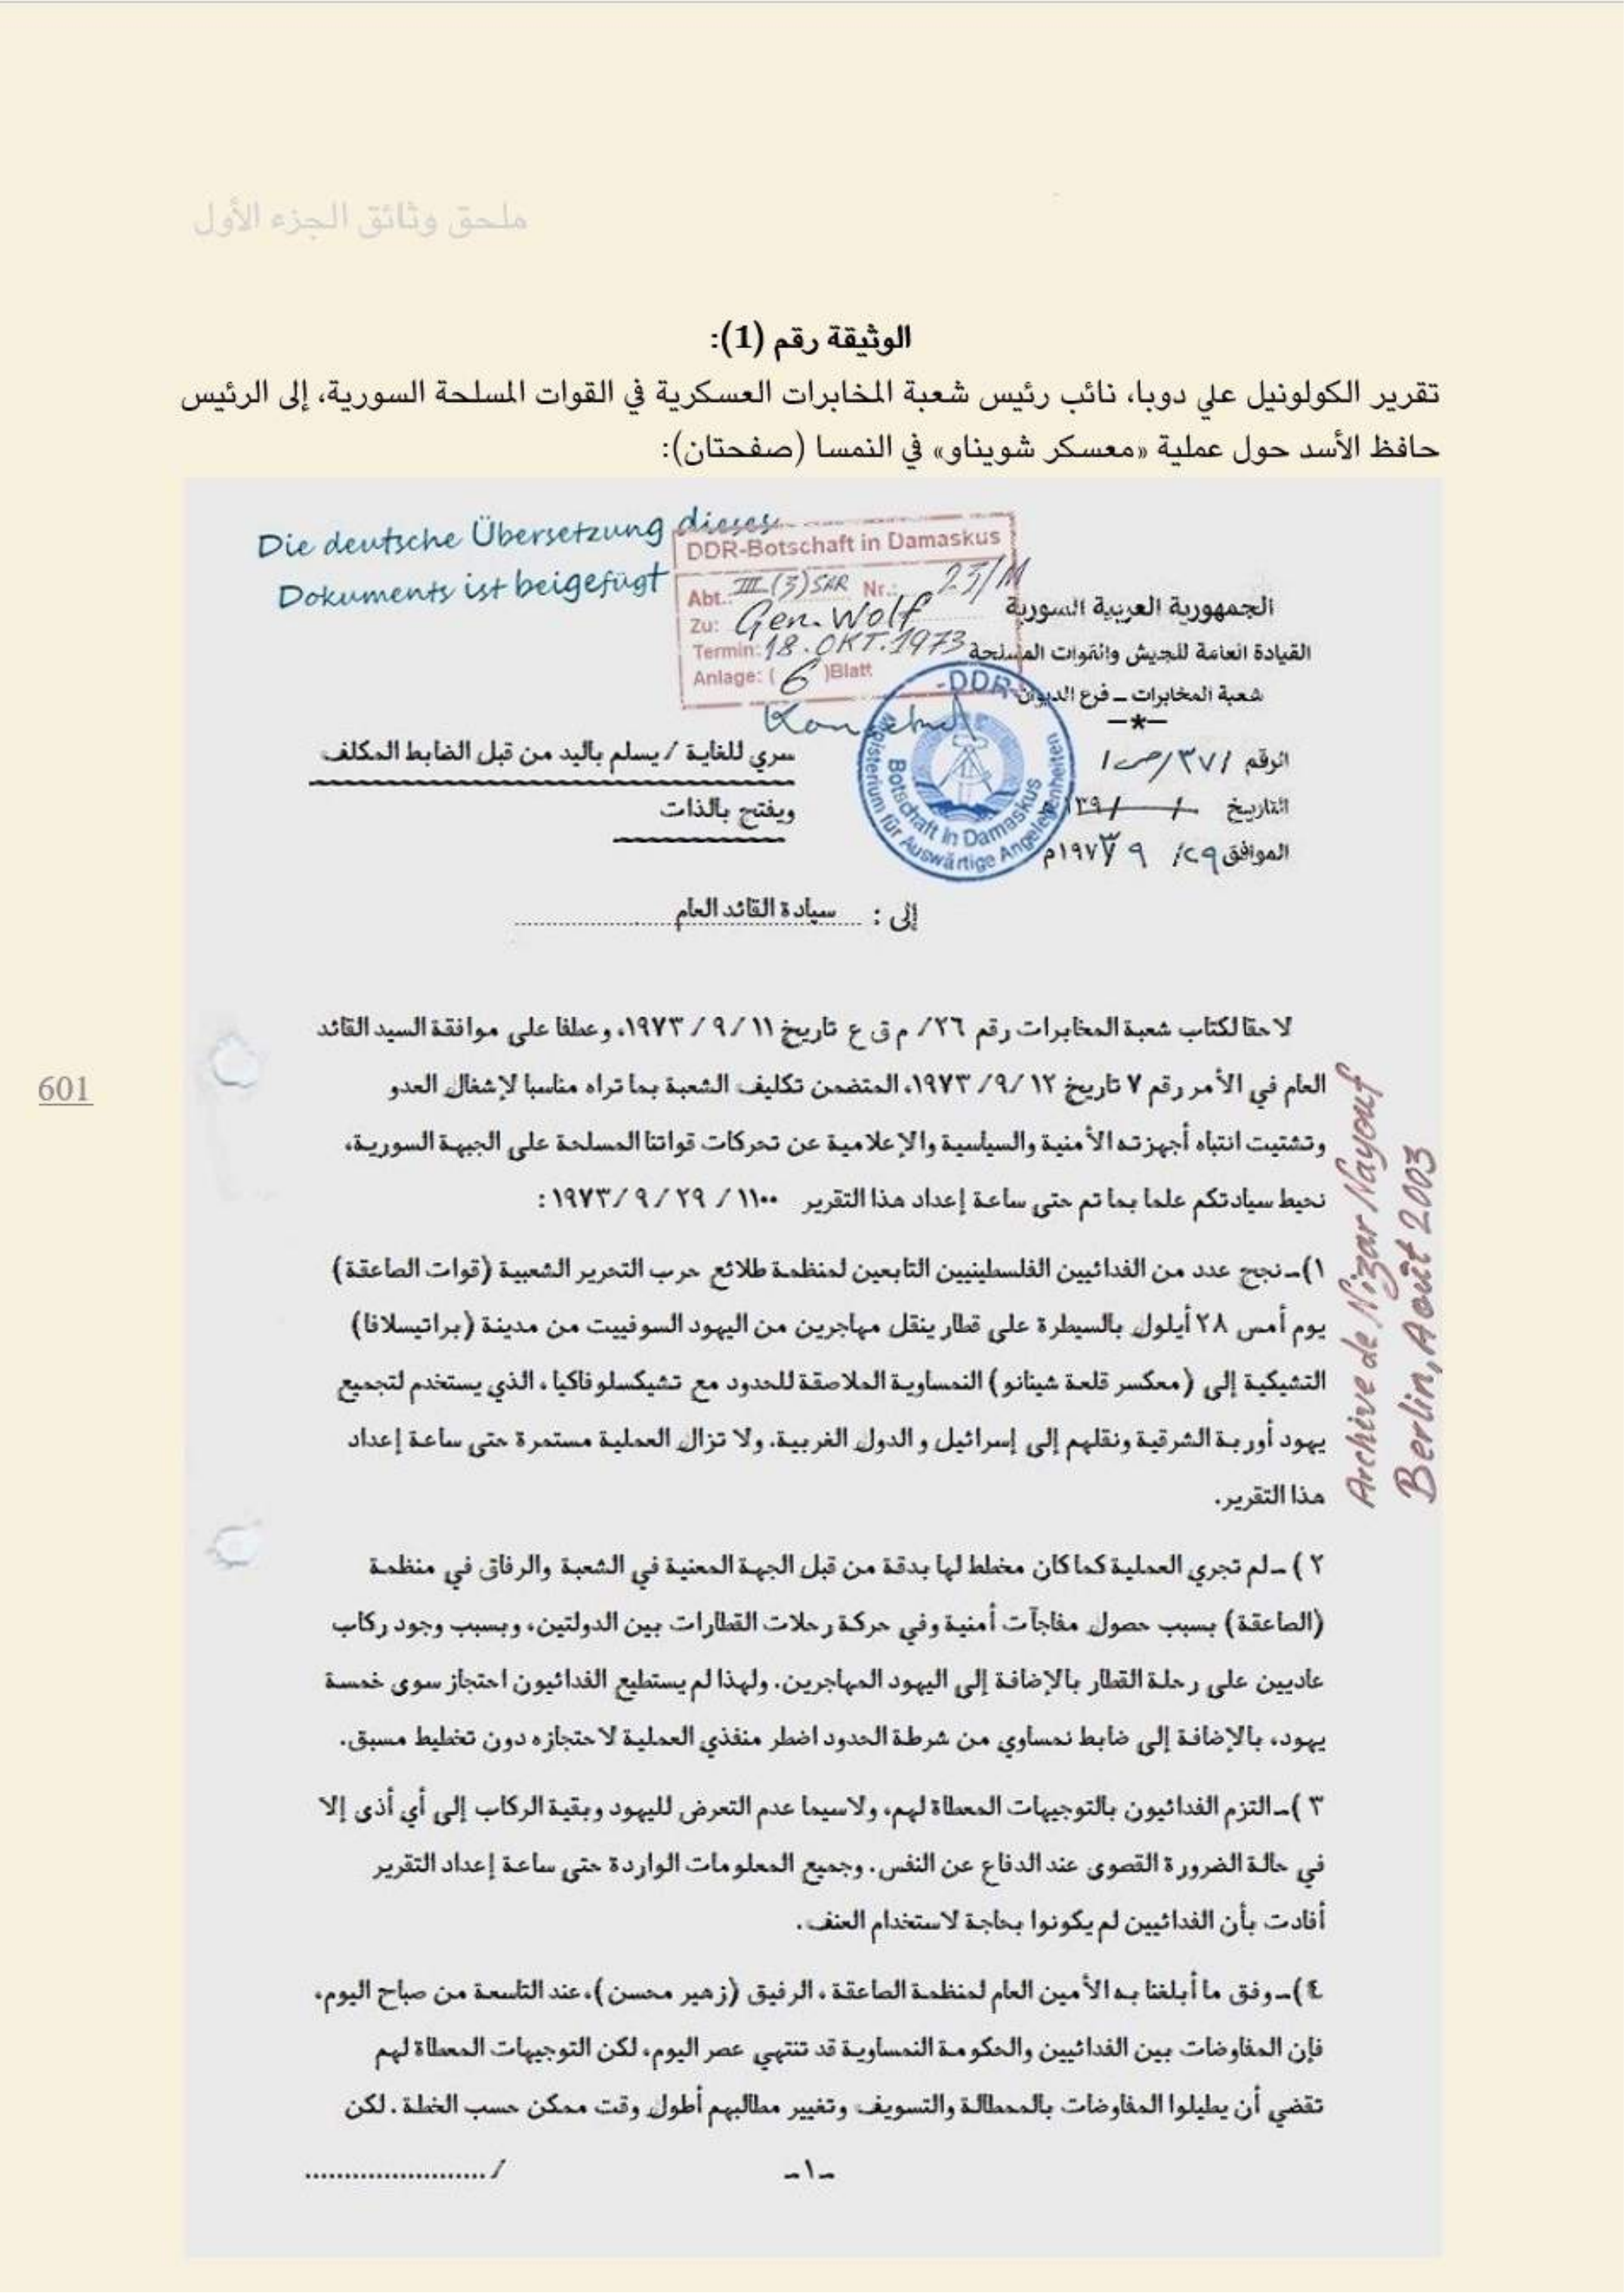 ملحق وثائق الجزء الأول
الوثيقة رقم (1):
تقرير الكولونيل علي دوبا، نائب رئيس شعبة المخابرات العسكرية في القوات المسلحة السورية، إلى الرئيس
حافظ الأسد حول عملية «معسكر شويناو» في النمسا (صفحتان):
Die deutsche Übersetzung dieses
Dokuments ist beigefügt
DDR-Botschaft in Damaskus
Abt.: III (3) SAR Nr.: 23/M
Zu: Gen. Wolf
Termin: 18. OKT. 1973
Anlage: ( 6 )Blatt
-DDR-
Ministerium für Auswärtige Angelegenheiten
Botschaft in Damaskus
الجمهورية العربية السورية
القيادة العامة للجيش والقوات المسلحة
شعبة المخابرات ـ فرع الديوان
—*—
الرقم ٣٧١/ص/١
التاريخ / / ١٣٩
الموافق ٢٩/ ٩ ١٩٧٣م
سري للغاية / يسلم باليد من قبل الضابط المكلف
ويفتح بالذات
إلى : سيادة القائد العام
لاحقا لكتاب شعبة المخابرات رقم ٢٦/ م ق ع تاريخ ١١ / ٩ / ١٩٧٣، وعطفا على موافقة السيد القائد
العام في الأمر رقم ٧ تاريخ ١٢ /٩/ ١٩٧٣، المتضمن تكليف الشعبة بما تراه مناسبا لإشغال العدو
وتشتيت انتباه أجهزته الأمنية والسياسية والإعلامية عن تحركات قواتنا المسلحة على الجبهة السورية،
نحيط سيادتكم علما بما تم حتى ساعة إعداد هذا التقرير ١١٠٠ / ٢٩ / ٩ /١٩٧٣ :
١)ـ نجح عدد من الفدائيين الفلسطينيين التابعين لمنظمة طلائع حرب التحرير الشعبية (قوات الصاعقة)
يوم أمس ٢٨ أيلول بالسيطرة على قطار ينقل مهاجرين من اليهود السوفييت من مدينة (براتيسلافا)
التشيكية إلى (معكسر قلعة شيناتو) النمساوية الملاصقة للحدود مع تشيكسلوفاكيا، الذي يستخدم لتجميع
يهود أوربة الشرقية ونقلهم إلى إسرائيل و الدول الغربية. ولا تزال العملية مستمرة حتى ساعة إعداد
هذا التقرير.
٢ )ـ لم تجري العملية كما كان مخطط لها بدقة من قبل الجهة المعنية في الشعبة والرفاق في منظمة
(الصاعقة) بسبب حصول مفاجآت أمنية وفي حركة رحلات القطارات بين الدولتين، وبسبب وجود ركاب
عاديين على رحلة القطار بالإضافة إلى اليهود المهاجرين. ولهذا لم يستطيع الفدائيون احتجاز سوى خمسة
يهود، بالإضافة إلى ضابط نمساوي من شرطة الحدود اضطر منفذي العملية لاحتجازه دون تخطيط مسبق.
٣ )ـ التزم الفدائيون بالتوجيهات المعطاة لهم، ولاسيما عدم التعرض لليهود وبقية الركاب إلى أي أذى إلا
في حالة الضرورة القصوى عند الدفاع عن النفس. وجميع المعلومات الواردة حتى ساعة إعداد التقرير
أفادت بأن الفدائيين لم يكونوا بحاجة لاستخدام العنف.
٤)ـ وفق ما أبلغنا به الأمين العام لمنظمة الصاعقة، الرفيق (زهير محسن)، عند التاسعة من صباح اليوم،
فإن المفاوضات بين الفدائيين والحكومة النمساوية قد تنتهي عصر اليوم، لكن التوجيهات المعطاة لهم
تقضي أن يطيلوا المفاوضات بالمماطلة والتسويف وتغيير مطالبهم أطول وقت ممكن حسب الخطة. لكن
ـ١ـ
/........................
Archive de Nizar Nayouf
Berlin, Août 2003
601